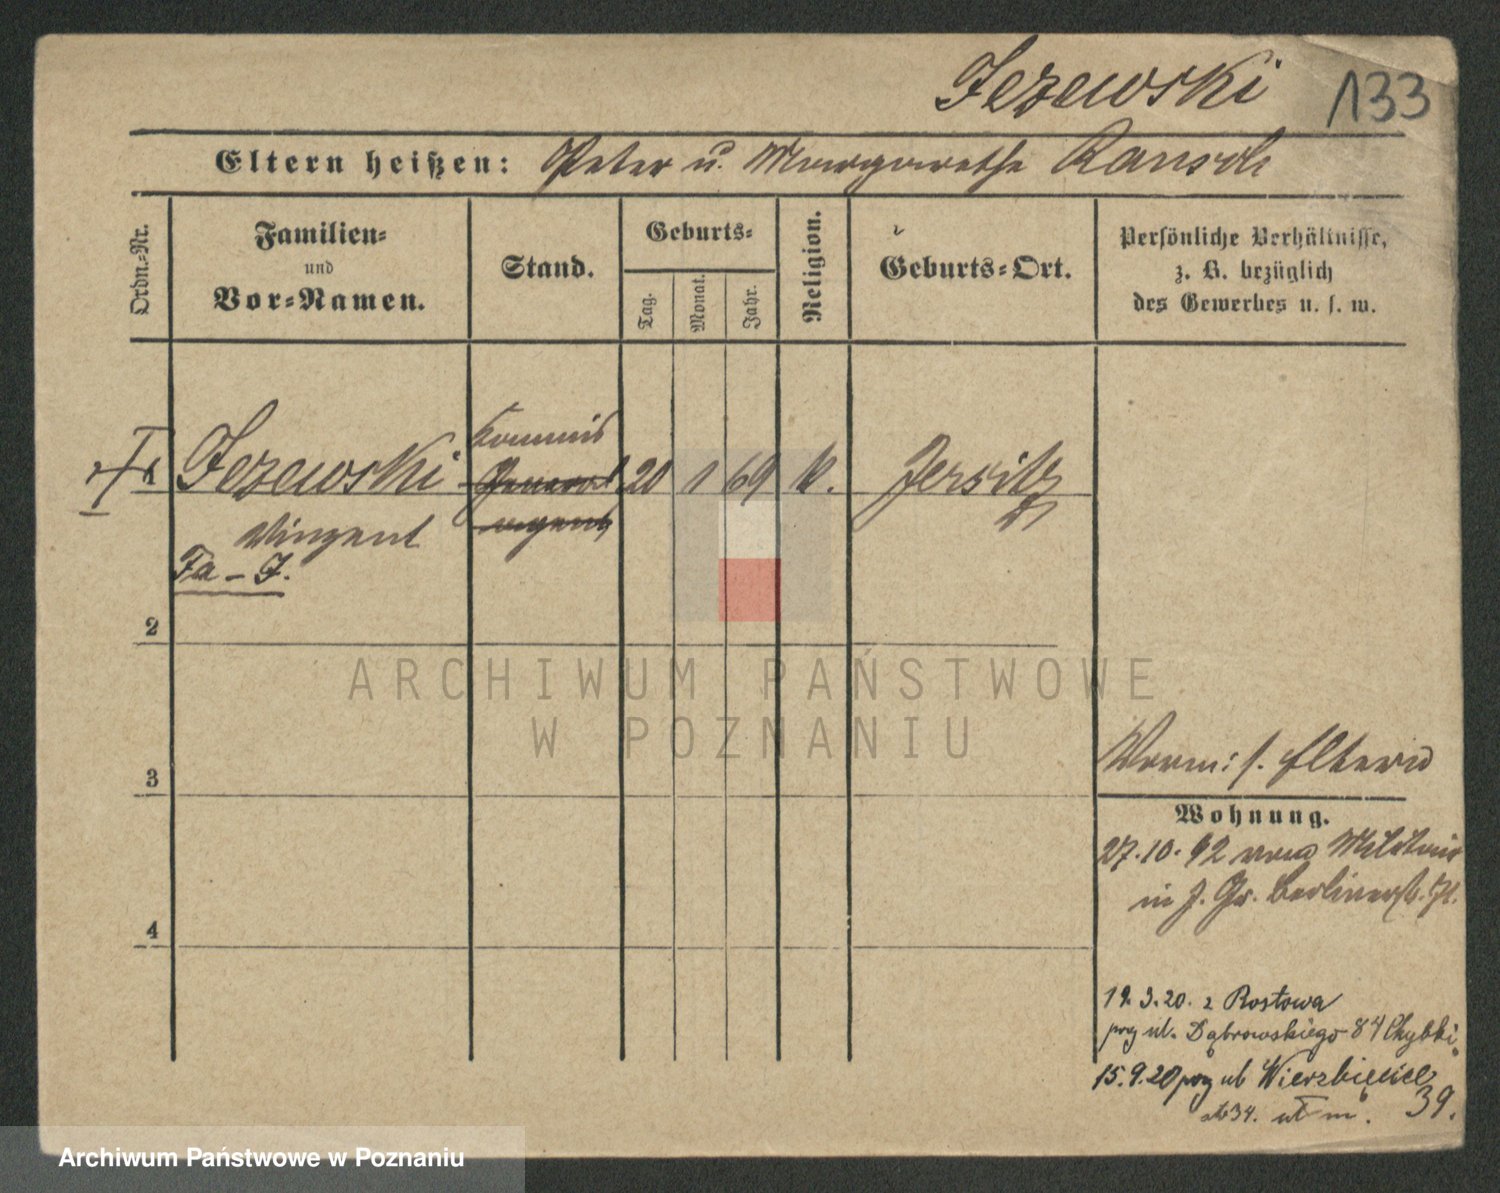 Jezewski 133
Eltern heißen: Peter u. Margarethe Rausch
Ordn.-Nr.
Familien-
und
Vor-Namen.
Stand.
Geburts-
Tag.
Monat.
Jahr.
Religion.
Geburts-Ort.
Persönliche Verhältnisse,
z. B. bezüglich
des Gewerbes u. s. w.
Kommis
Jezewski General 20 1 69 k. Jersitz
Vinzent agent
Fa - J.
2
ARCHIWUM PAŃSTWOWE
W POZNANIU
3
Vorm: s. Eltern
Wohnung.
27.10.92 vom Militair
in J. Gr. Berlinerstr.
4
19.3.20. z Rostowa
przy ul. Dąbrowskiego 84 Chybki
15.9.20 przy ul Wierzbięcice
34. 39.
Archiwum Państwowe w Poznaniu